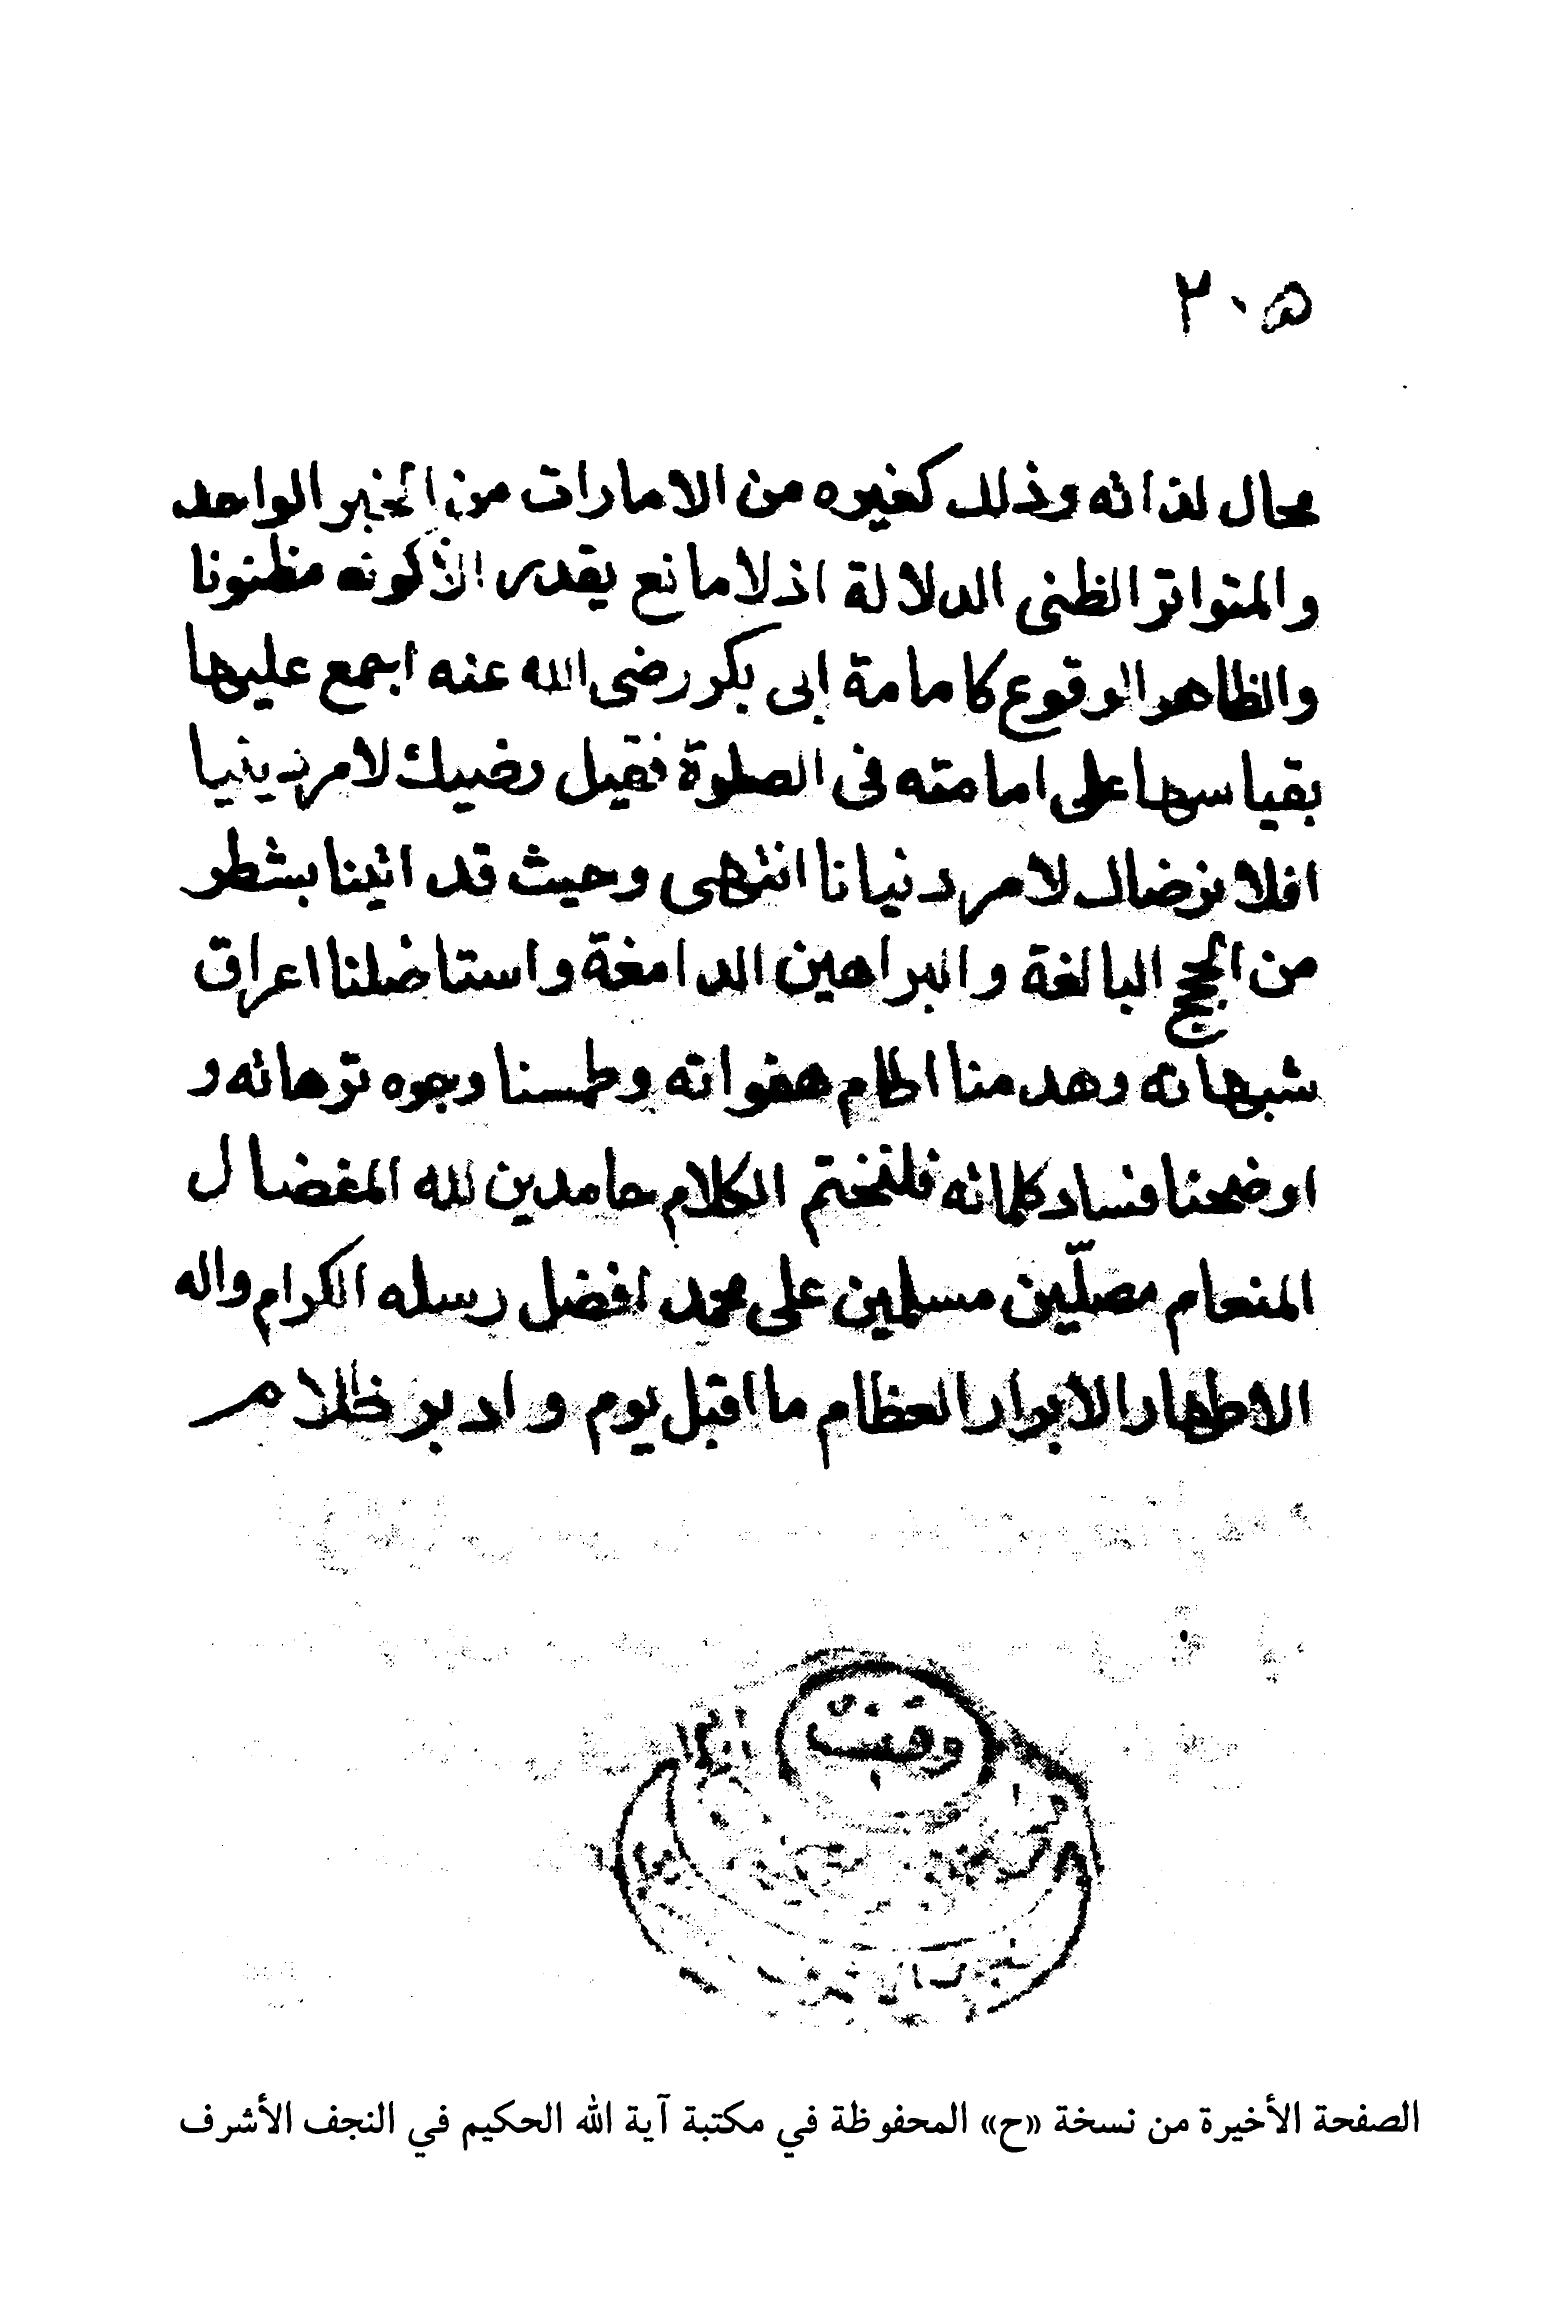 ٢٠٥
محال لذاته وذلك كغيره من الامارات من الخبر الواحد
والمتواتر الظنى الدلالة اذ لا مانع يقدر الا كونه مظنونا
والظاهر الوقوع كامامة ابى بكر رضى الله عنه اجمع عليها
بقياسها على امامته فى الصلوة فقيل رضيك لامر ديننا
افلا نرضاك لامر دنيانا انتهى وحيث قد اتينا بشطر
من الحجج البالغة والبراهين الدامغة واستاصلنا اعراق
شبهاته وهدمنا اطام هفواته وطمسنا وجوه ترهاته و
اوضحنا فساد كلماته فلنختم الكلام حامدين لله المفضال
المنعام مصلّين مسلمين على محمد افضل رسله الكرام واله
الاطهار الابرار العظام ما اقبل يوم وادبر ظلام
الصفحة الأخيرة من نسخة «ح» المحفوظة في مكتبة آية الله الحكيم في النجف الأشرف